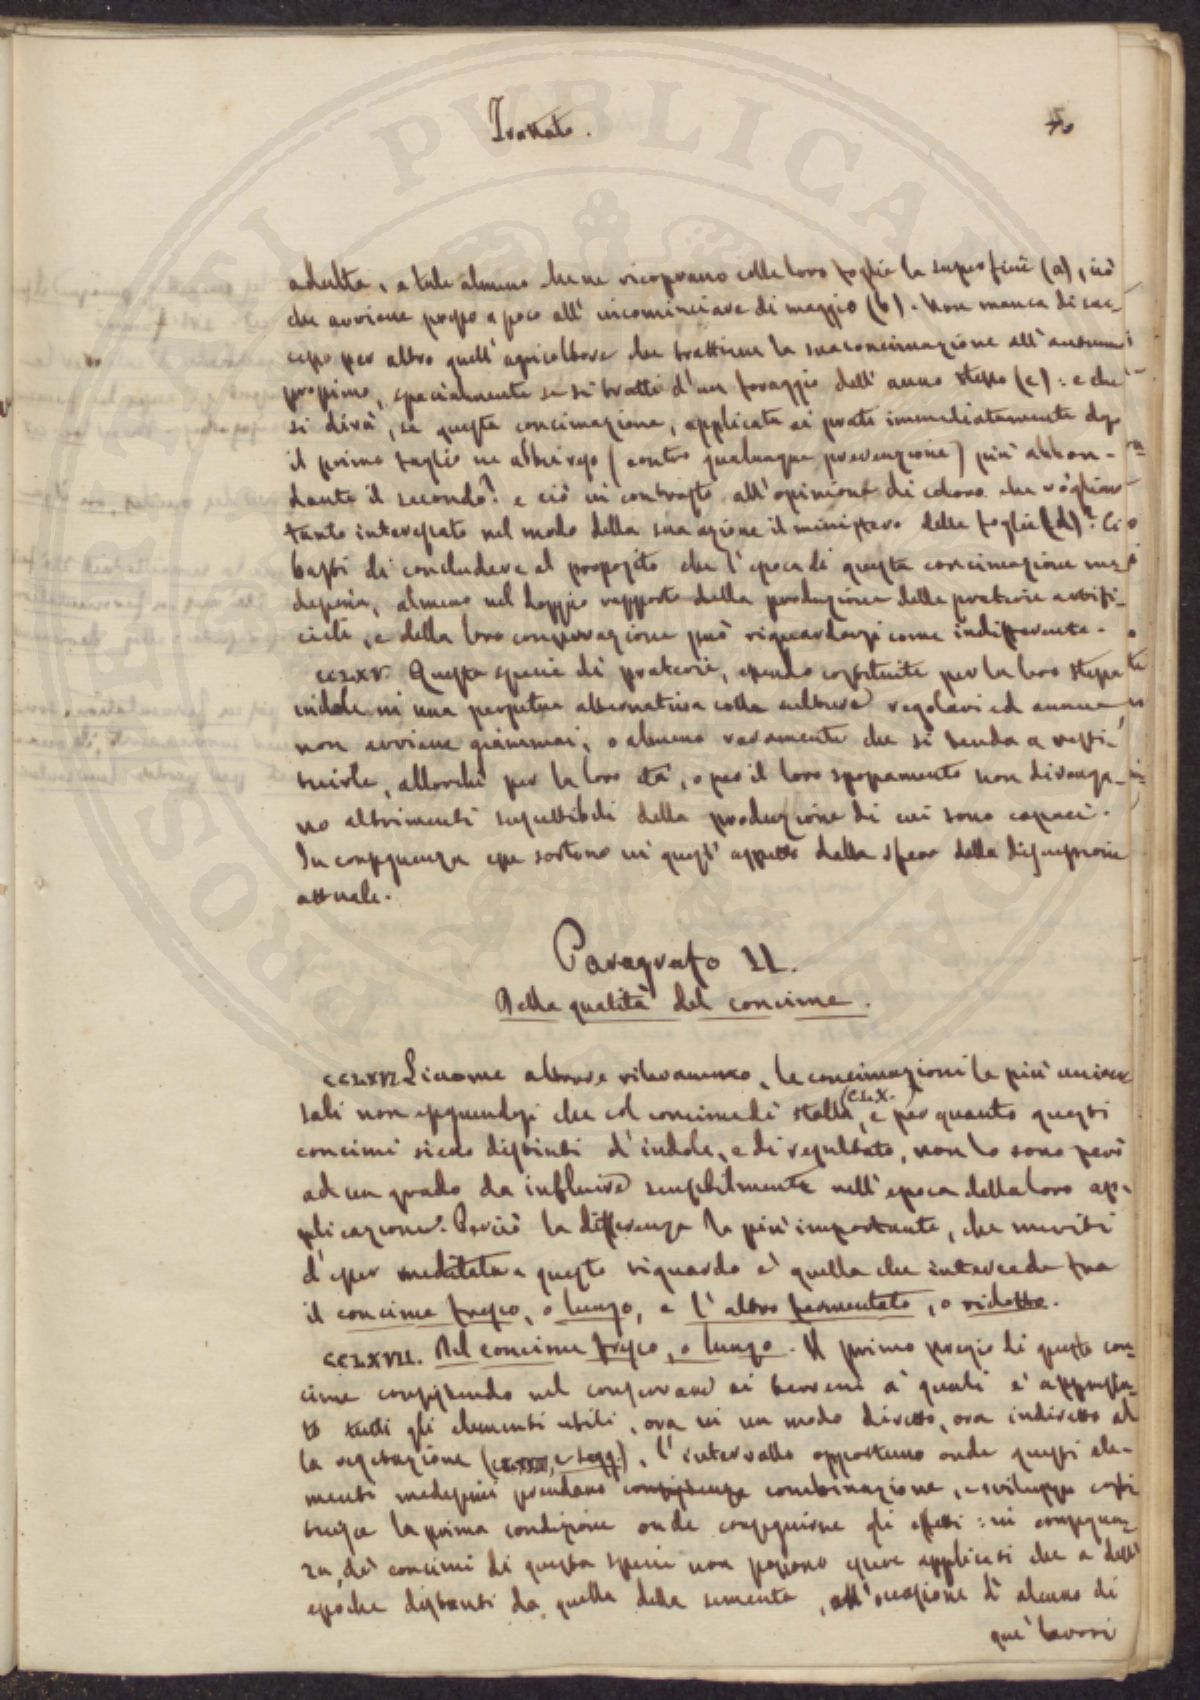 Trattato.
50
adulta, a tale almeno che ne ricoprano colle loro foglie la superficie (a), ciò
che avviene presso a poco all' incominciare di maggio (b). Non manca di suc-
cesso per altro quell' agricoltore che trattiene la sua concimazione all' autunno
prossimo, specialmente se si tratti d' un foraggio dell' anno stesso (c): e che
si dirà, se questa concimazione, applicata ai prati immediatamente dopo
il primo taglio ne assicuri (contro qualunque prevenzione) più abbon-
dante il secondo? e ciò in contrasto all' opinione di coloro che vogliono
tanto interessato nel modo della sua azione il ministero delle foglie (d)? Ci
basti di concludere al proposito che l' epoca di questa concimazione me-
desima, almeno nel doppio rapporto della produzione delle praterie artifi-
ciali, e della loro conservazione può riguardarsi come indifferente.
CCLXV. Questa specie di praterie, essendo costituite per la loro stessa
indole in una perpetua alternativa colla cultura regolari ed annue
non avviene giammai, o almeno raramente che si tenda a resti-
tuirle, allorchè per la loro età, o per il loro spossamento non divenga-
no altrimenti suscettibili della produzione di cui sono capaci.
In conseguenza esse sortono in quest' aspetto dalla sfera della discussione
attuale.
Paragrafo II.
Della qualità del concime.
CCLXVI. Siccome altrove rilevammo, le concimazioni le più univer
sali non eseguendosi che col concime di stalla (CLX.), e per quanto questi
concimi sieno distinti d' indole, e di resultato, non lo sono però
ad un grado da influire sensibilmente nell' epoca della loro ap-
plicazione. Perciò la differenza la più importante, che meriti
d' esser meditata a questo riguardo è quella che intercede fra
il concime fresco, o lungo, e l' altro fermentato, o ridotto.
CCLXVII. Del concime fresco, o lungo. Il primo pregio di questo con-
cime consistendo nel conservare ai terreni a' quali è appresta-
to tutti gli elementi utili, ora in un modo diretto, ora indiretto al
la vegetazione (e segg.), l' intervallo opportuno onde questi ele-
menti medesimi prendano consistenza combinazione, e sviluppo costi
tuisce la prima condizione onde conseguirne gli effetti: in conseguen-
za, de' concimi di questa specie non possono essere applicati che a delle
epoche distanti da quella della sementa, all' occasione d' alcuno di
que' lavori